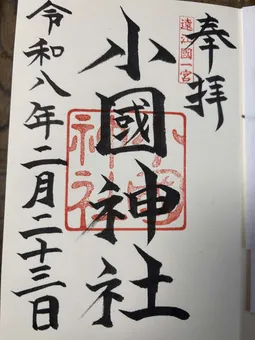 奉拝
遠江國一宮
小國神社
小國神社
令和八年二月二十三日